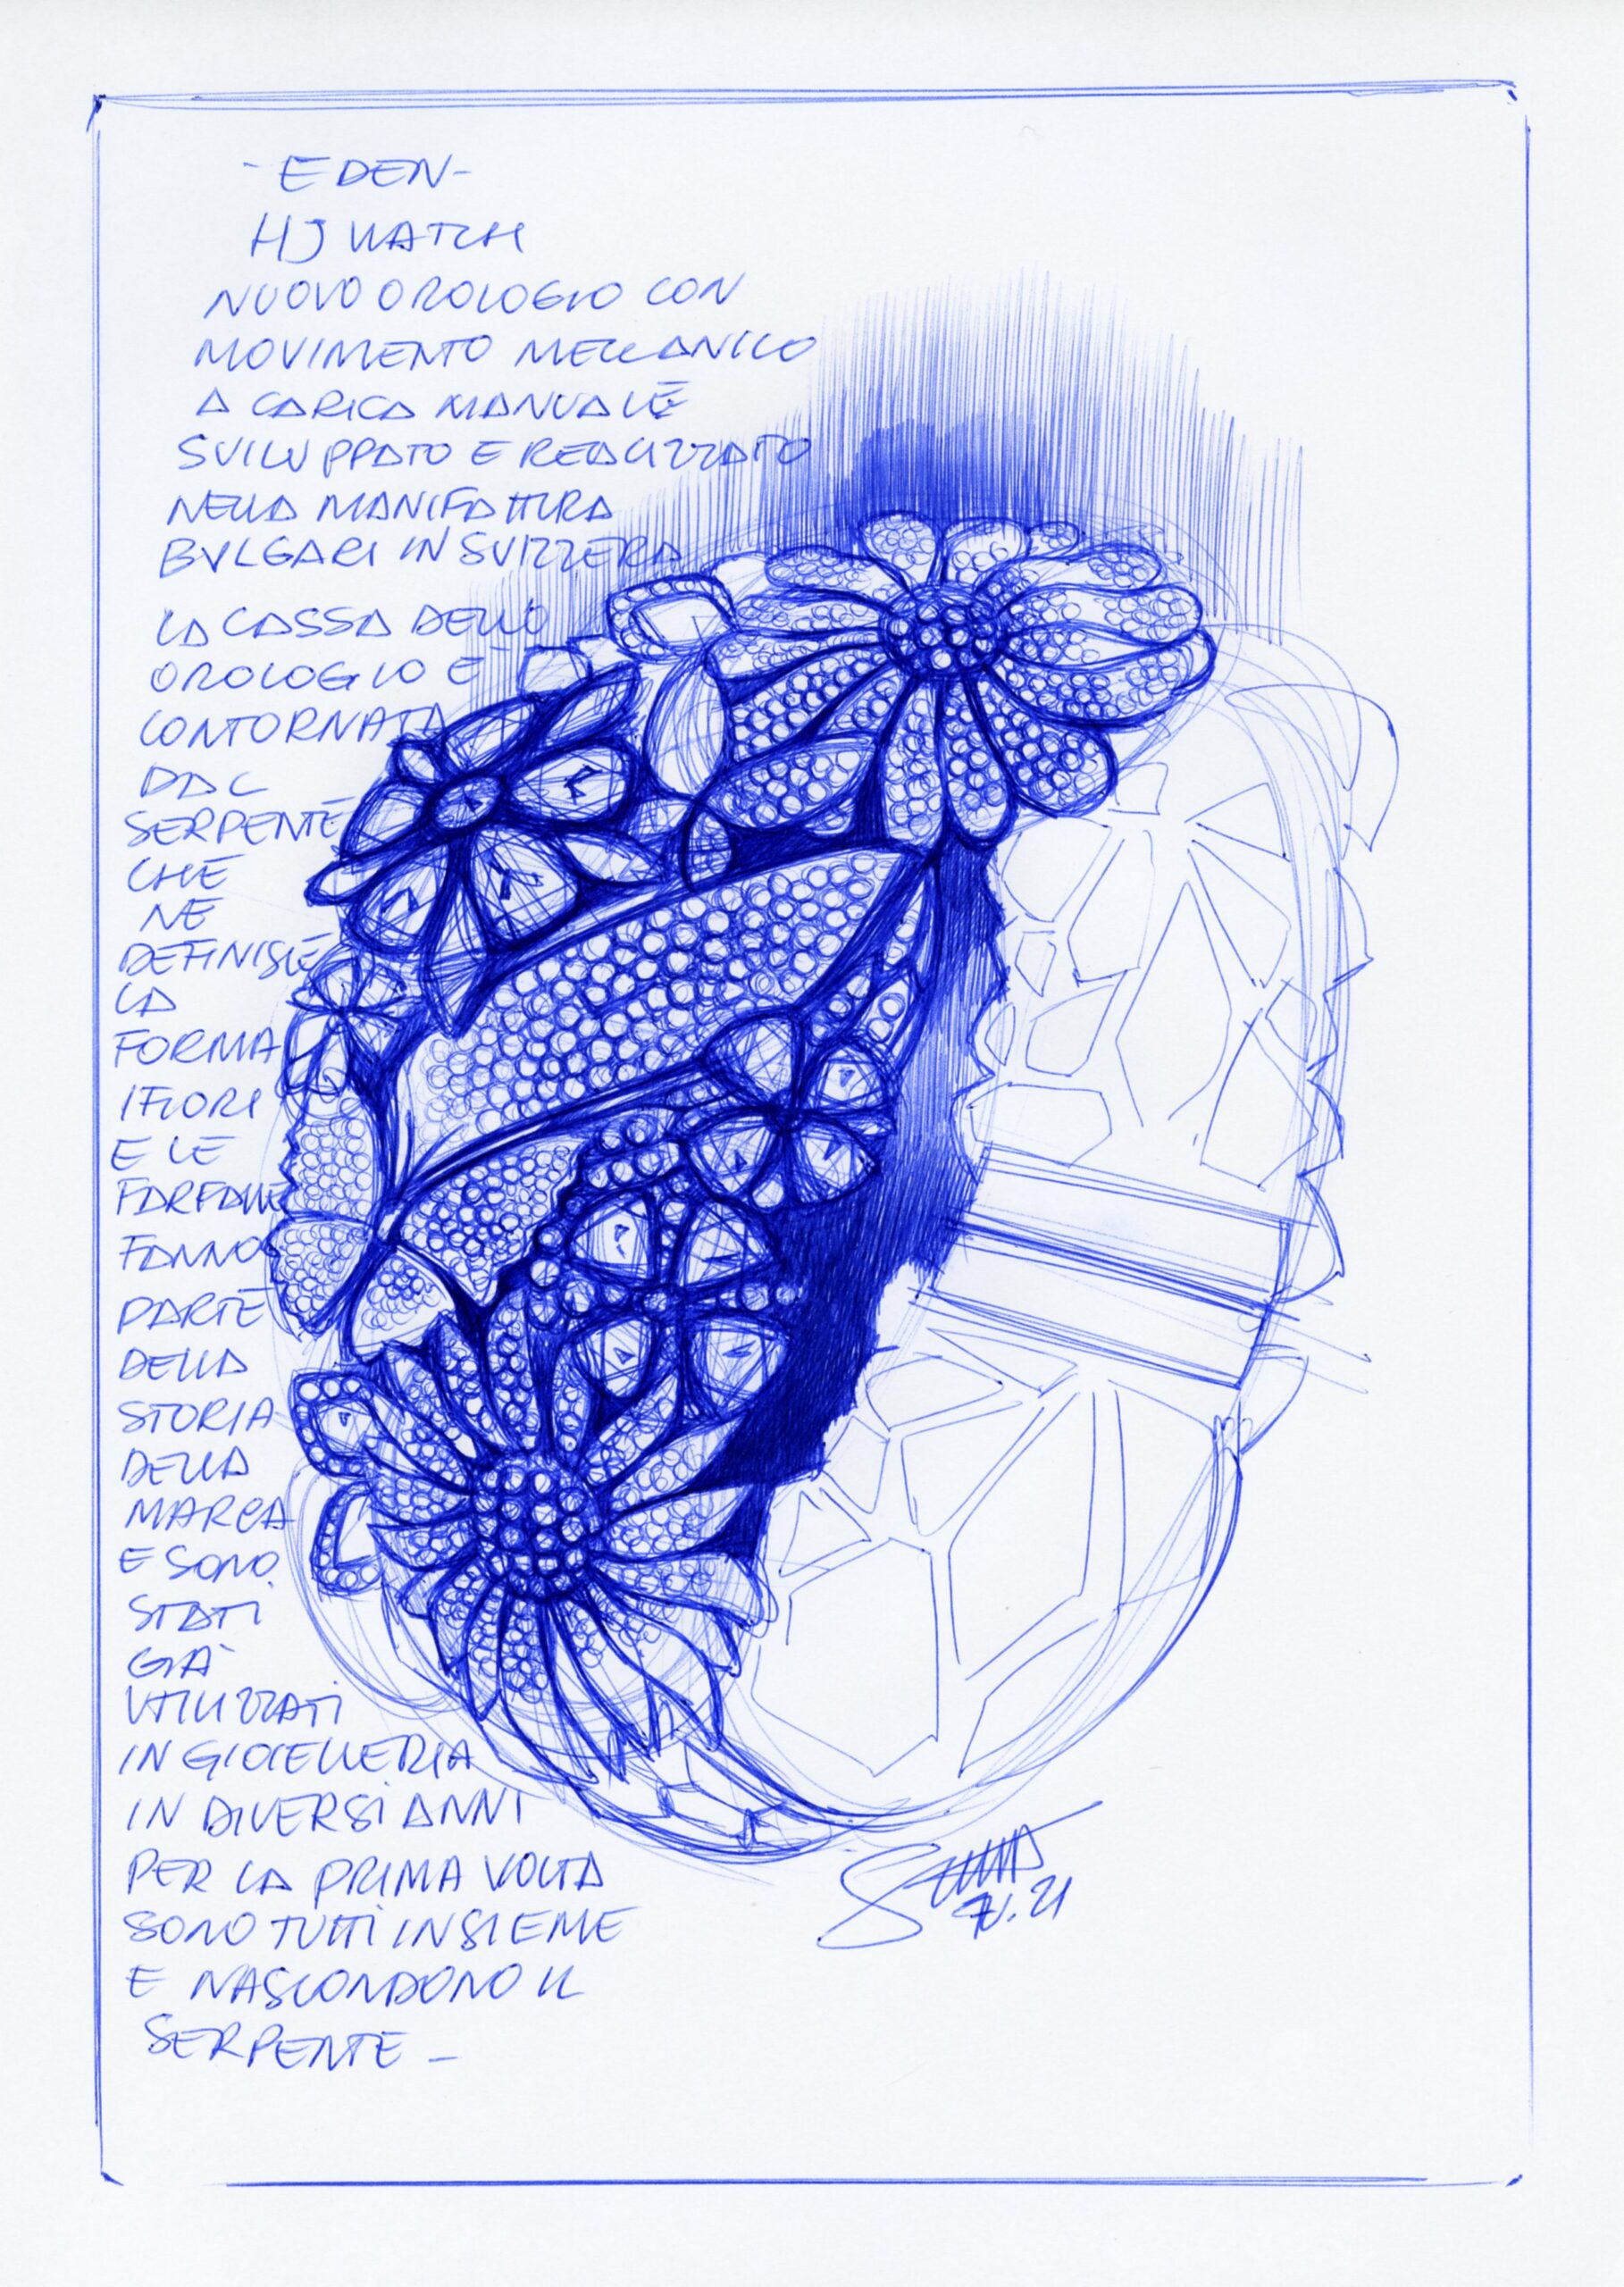 - EDEN -
HJ WATCH
NUOVO OROLOGIO CON
MOVIMENTO MECCANICO
A CARICA MANUALE
SVILUPPATO E REALIZZATO
NELLA MANIFATTURA
BVLGARI IN SVIZZERA
LA CASSA DELLO
OROLOGIO E'
CONTORNATA
DAL
SERPENTE
CHE
NE
DEFINISCE
LA
FORMA
I FIORI
E LE
FARFALLE
FANNO
PARTE
DELLA
STORIA
DELLA
MARCA
E SONO
STATI
GIÀ
UTILIZZATI
IN GIOIELLERIA
IN DIVERSI ANNI
PER LA PRIMA VOLTA
SONO TUTTI INSIEME
E NASCONDONO IL
SERPENTE -